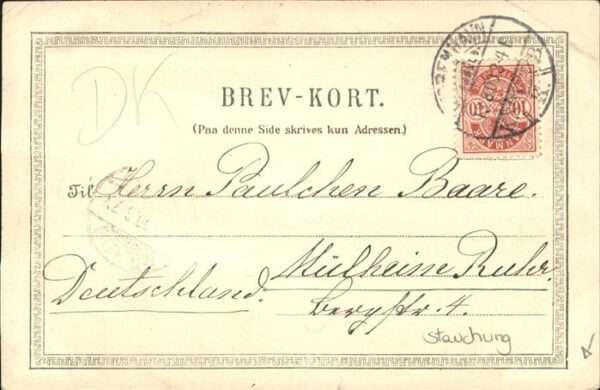 DK
BREV-KORT.
(Paa denne Side skrives kun Adressen.)
10 10
DANMARK
Til Herrn Paulchen Baare.
Mülheim Ruhr.
Deutschland. Bergstr. 4.
Stauchung